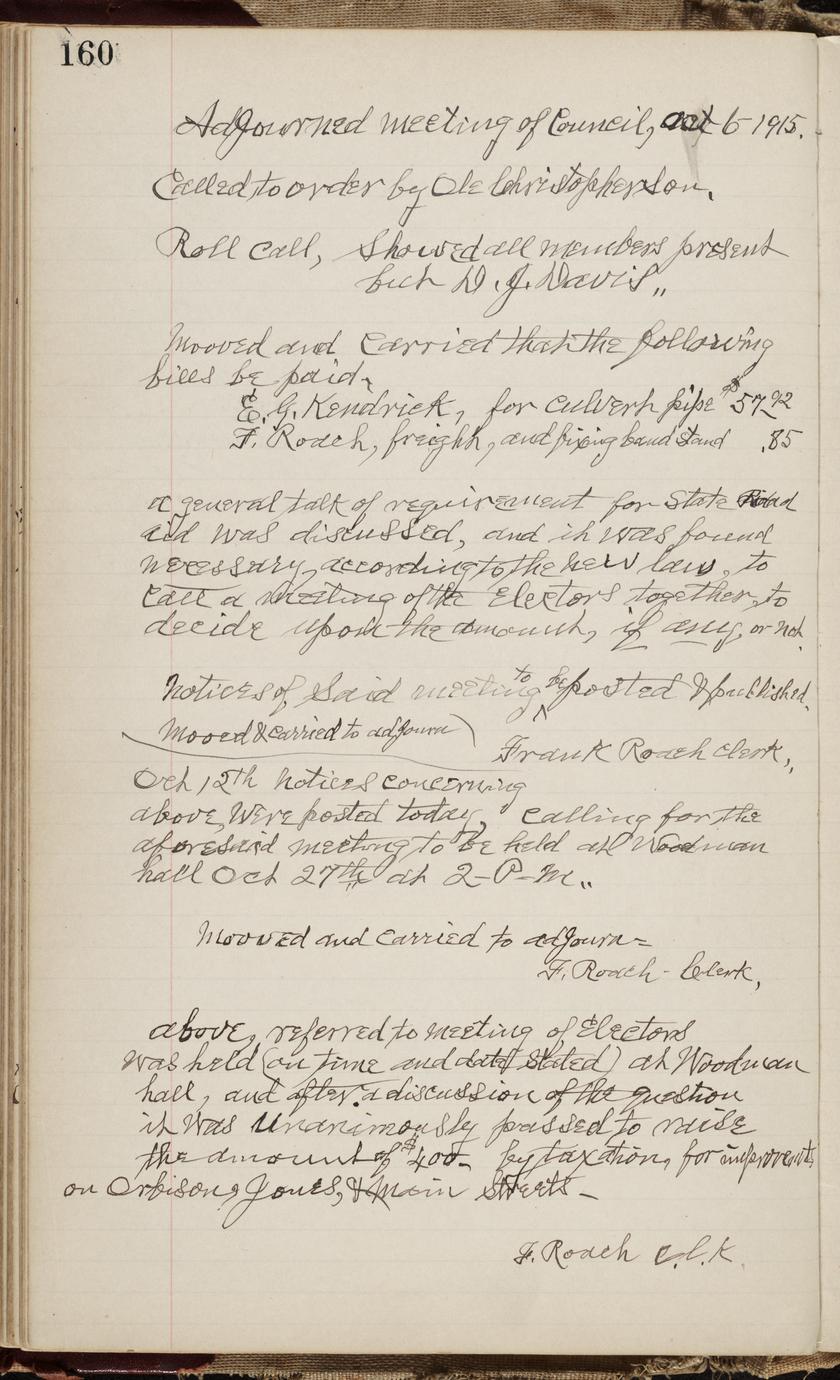 160
Adjourned meeting of Council, Oct 6 1915.
Called to order by Ole Christopherson.
Roll Call, Showed all members present
but D. J. Davis,,
Mooved and Carried that the following
bills be paid,
E. G. Kendrick, for culvert pipe $57.92
F. Roach, freight, and fixing band stand .85
a general talk of requirement for State Road
aid was discussed, and it was found
necessary, according to the new law, to
call a meeting of the Electors together, to
decide upon the amount, if any, or not.
Notices of Said meeting to be posted & published.
Mooved & carried to adjourn
Frank Roach clerk,,
Oct 12th Notices concerning
above, Were posted today, Calling for the
aforesaid meeting to be held at Woodman
hall Oct 27th at 2-P-M,,
Mooved and Carried to adjourn=
F. Roach - Clerk,
above, referred to meeting of Electors
was held (on time and date stated) at Woodman
hall, and after a discussion of the question
it was Unanimously passed to raise
the amount of $400- by taxation, for improvents
on Orbison, Jones, & Main Streets -
F. Roach C.l.K.